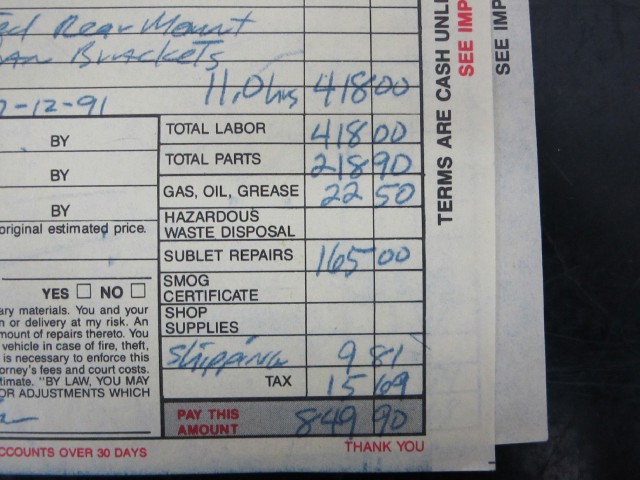 Rear Mount
Brackets
11.0 hrs 418 00
-12-91
TOTAL LABOR 418 00
BY
TOTAL PARTS 218 90
BY
GAS, OIL, GREASE 22 50
BY
HAZARDOUS
WASTE DISPOSAL
original estimated price.
SUBLET REPAIRS 165 00
SMOG
CERTIFICATE
YES □ NO □
SHOP
SUPPLIES
ary materials. You and your
n or delivery at my risk. An
mount of repairs thereto. You
vehicle in case of fire, theft,
is necessary to enforce this
orney's fees and court costs.
timate. "BY LAW, YOU MAY
OR ADJUSTMENTS WHICH
Shipping 9 81
TAX 15 69
PAY THIS
AMOUNT 849 90
CCOUNTS OVER 30 DAYS
THANK YOU
TERMS ARE CASH UNL
SEE IMP
SEE IMP